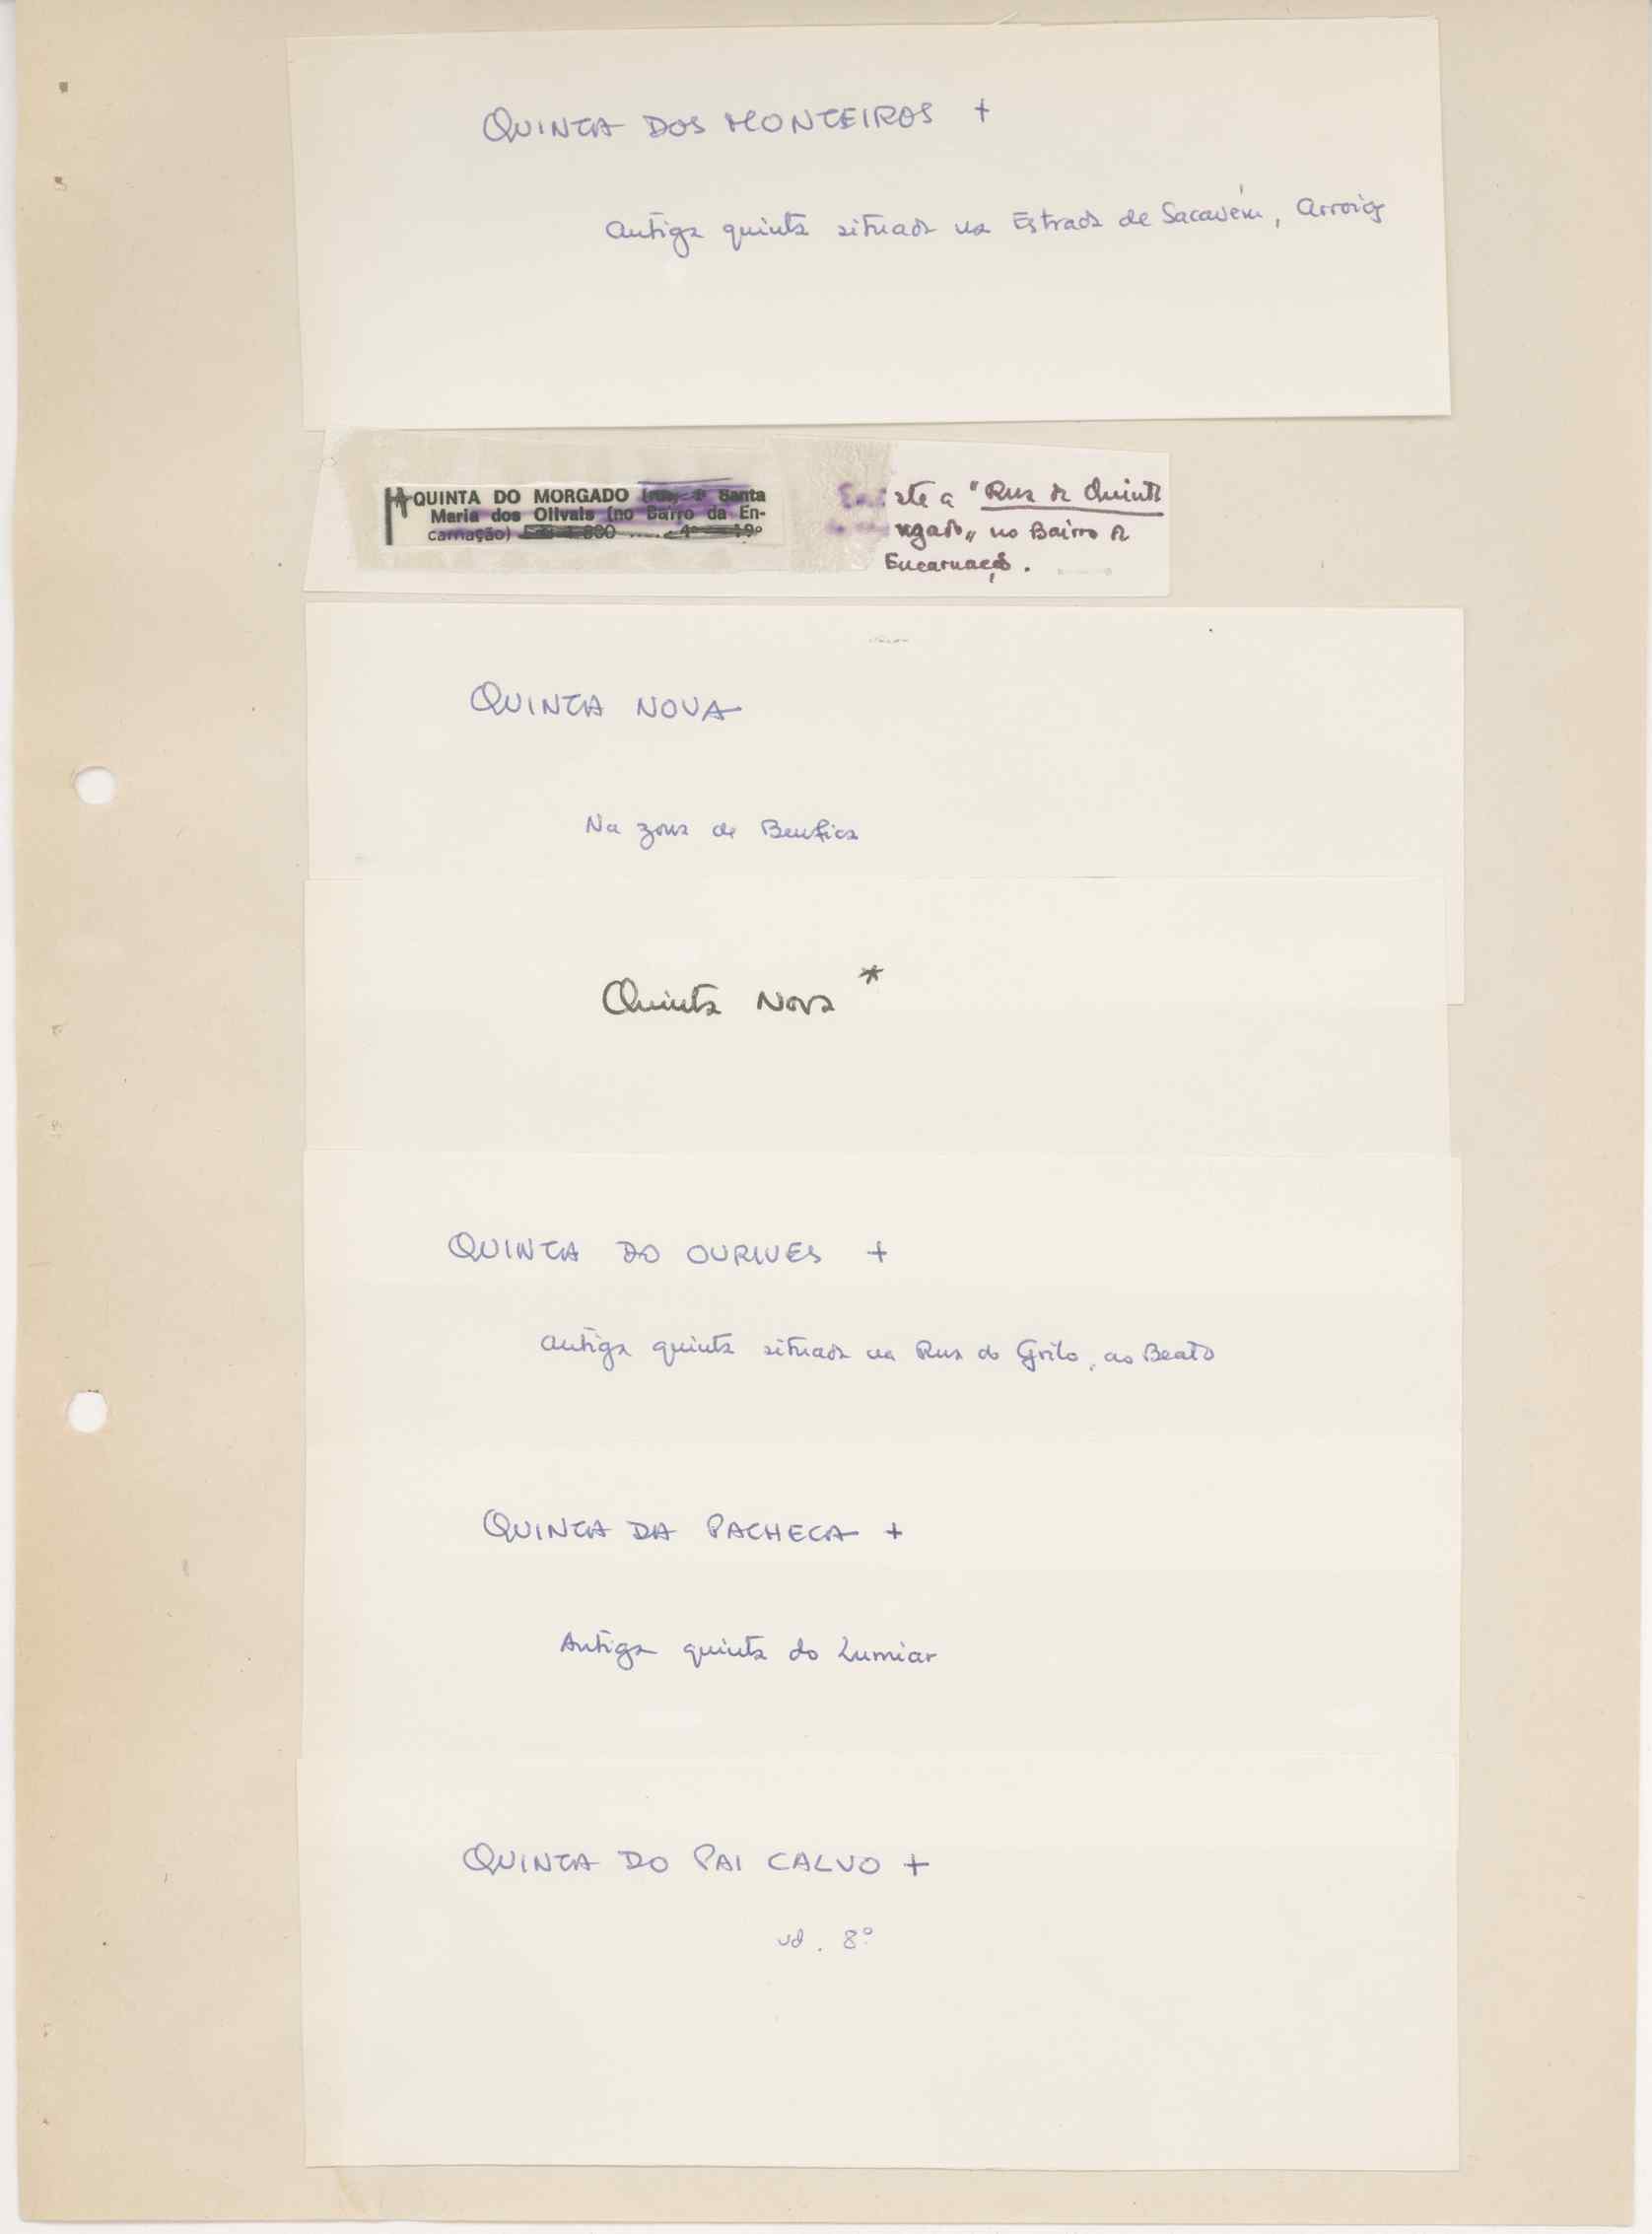 QUINTA DOS MONTEIROS +
Antiga quinta situada na Estrada de Sacavém, Arroios
QUINTA DO MORGADO (rua) Santa
Maria dos Olivais (no Bairro da En-
carnação) 4º 19º
ste a "Rua da Quinta
rgado" no Bairro da
Encarnação.
QUINTA NOVA
Na zona de Benfica
Quinta Nova *
QUINTA DO OURIVES +
Antiga quinta situada na Rua do Grilo, ao Beato
QUINTA DA PACHECA +
Antiga quinta do Lumiar
QUINTA DO PAI CALVO +
vd. 8º